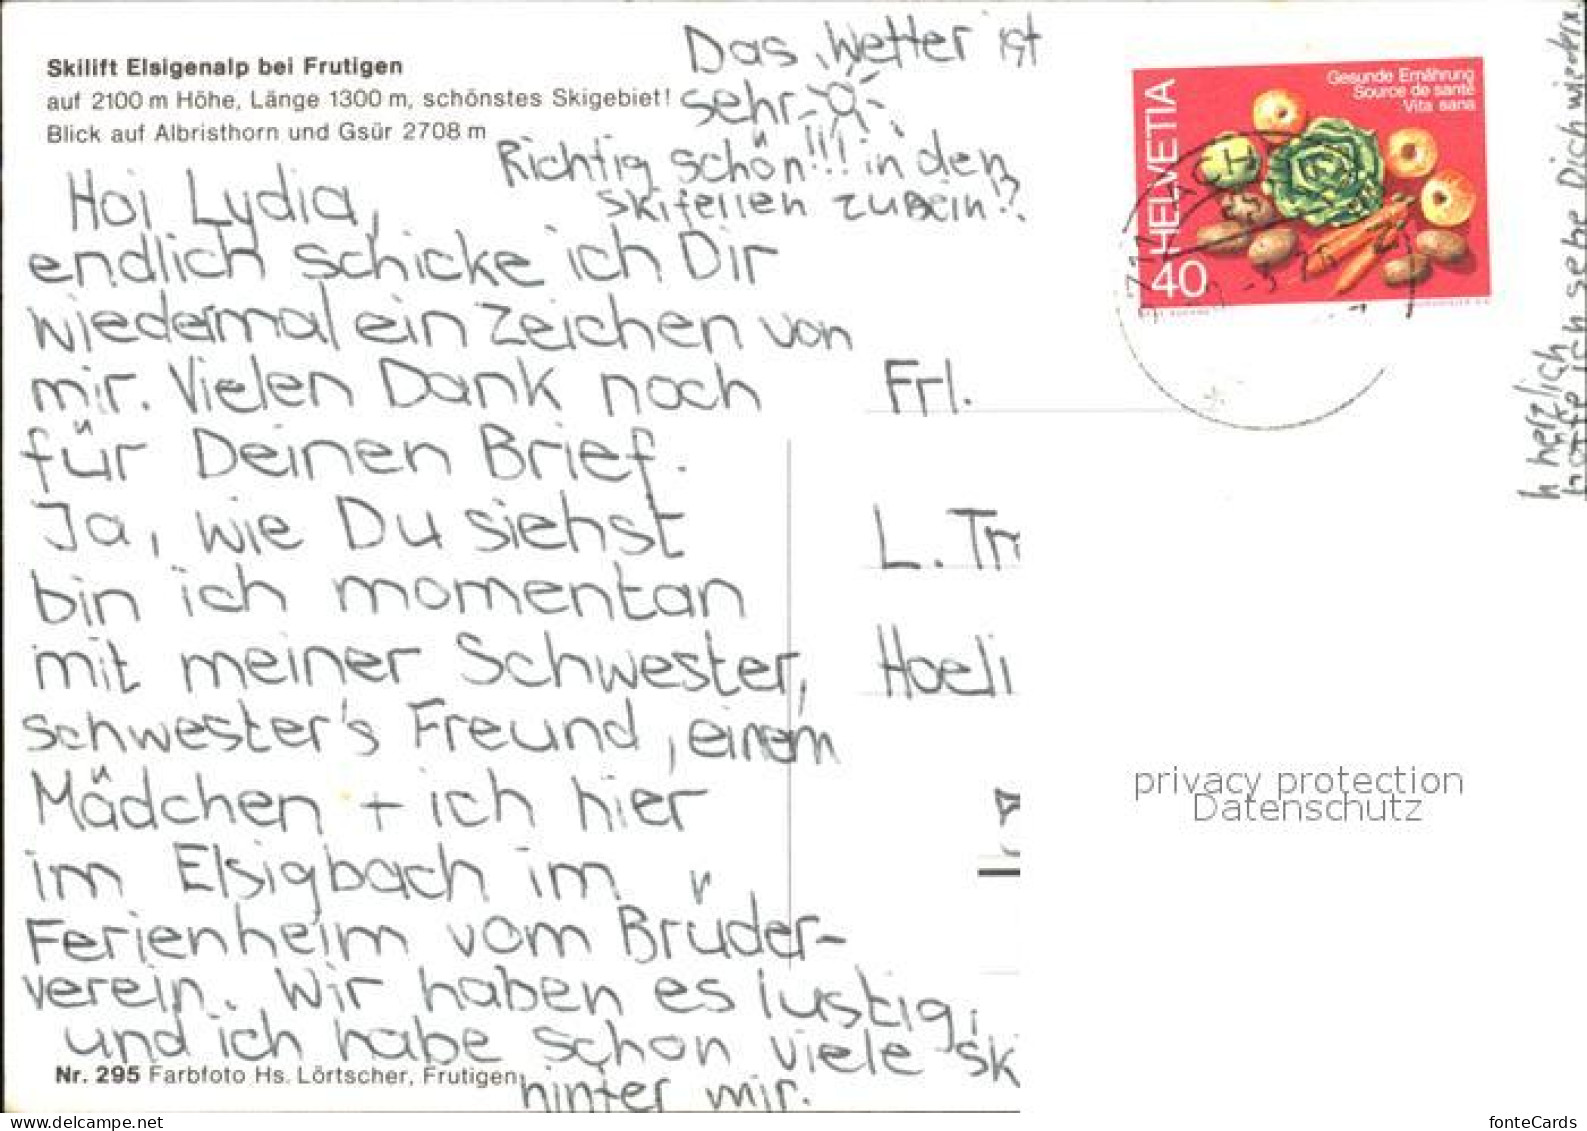 Skilift Elsigenalp bei Frutigen
auf 2100 m Höhe, Länge 1300 m, schönstes Skigebiet!
Blick auf Albristhorn und Gsür 2708 m
Das Wetter ist
sehr
Richtig schön!!! in den
Skiferien zu sein!?
Hoi Lydia,
endlich schicke ich Dir
wiedermal ein Zeichen von
mir. Vielen Dank noch
für Deinen Brief.
Ja, wie Du siehst
bin ich momentan
mit meiner Schwester,
Schwester's Freund, einem
Mädchen + ich hier
im Elsigbach im
Ferienheim vom Brüder-
verein. Wir haben es lustig,
und ich habe schon viele Sk
hinter mir.
Nr. 295 Farbfoto Hs. Lörtscher, Frutigen
HELVETIA
40
Gesunde Ernährung
Source de santé
Vita sana
Frl.
L. Tr
Hoeli
h herzlich
ich sehe Dich wieder
privacy protection
Datenschutz
www.delcampe.net
fonteCards